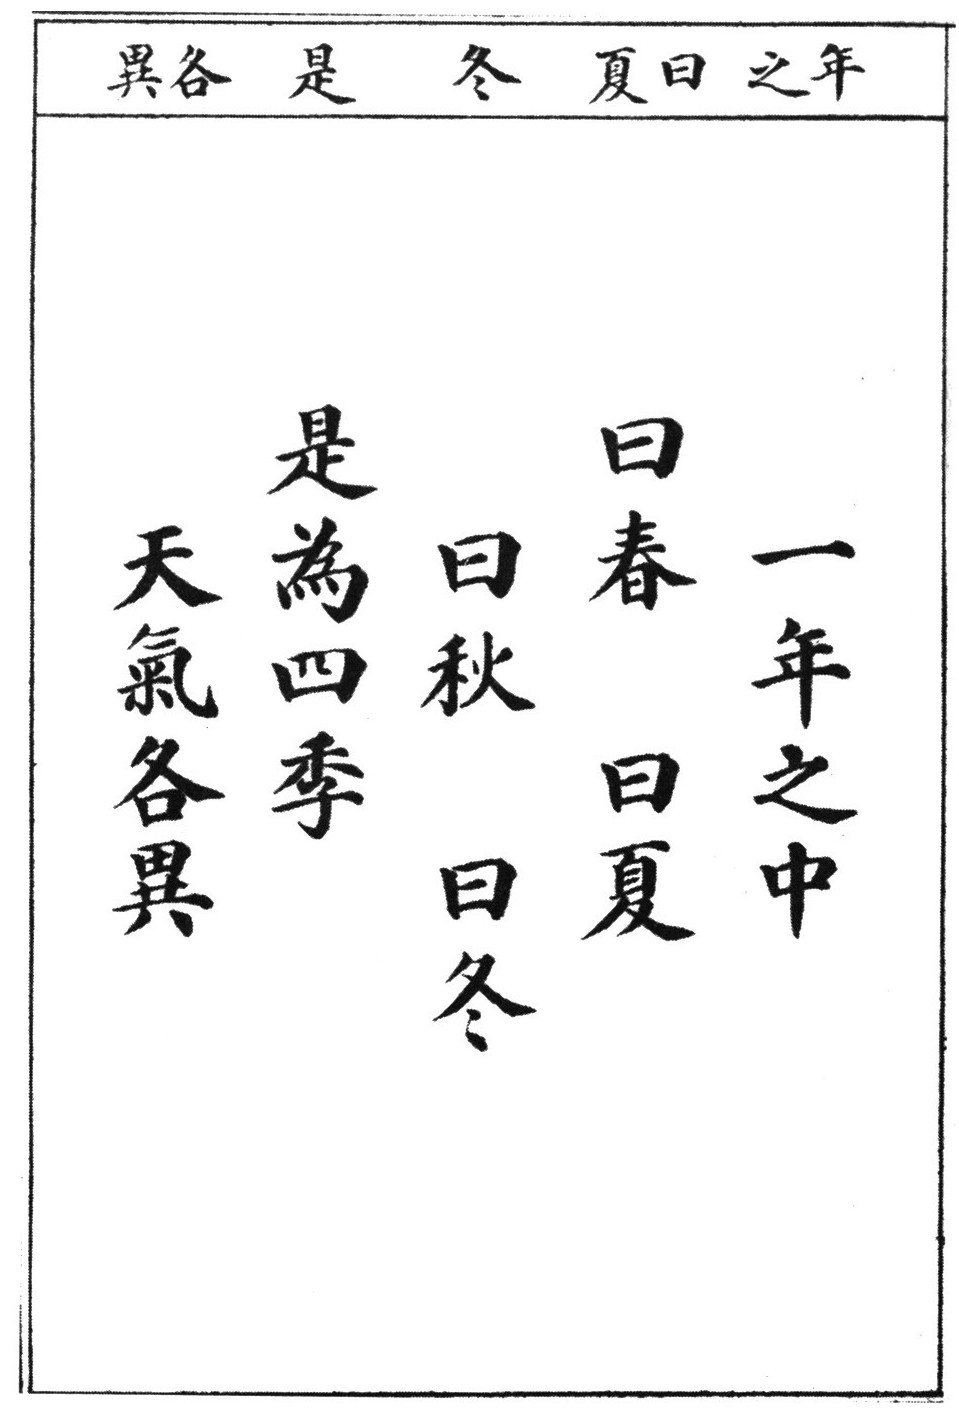 年之 曰夏 冬 是 各異
一年之中
曰春 曰夏
曰秋 曰冬
是為四季
天氣各異